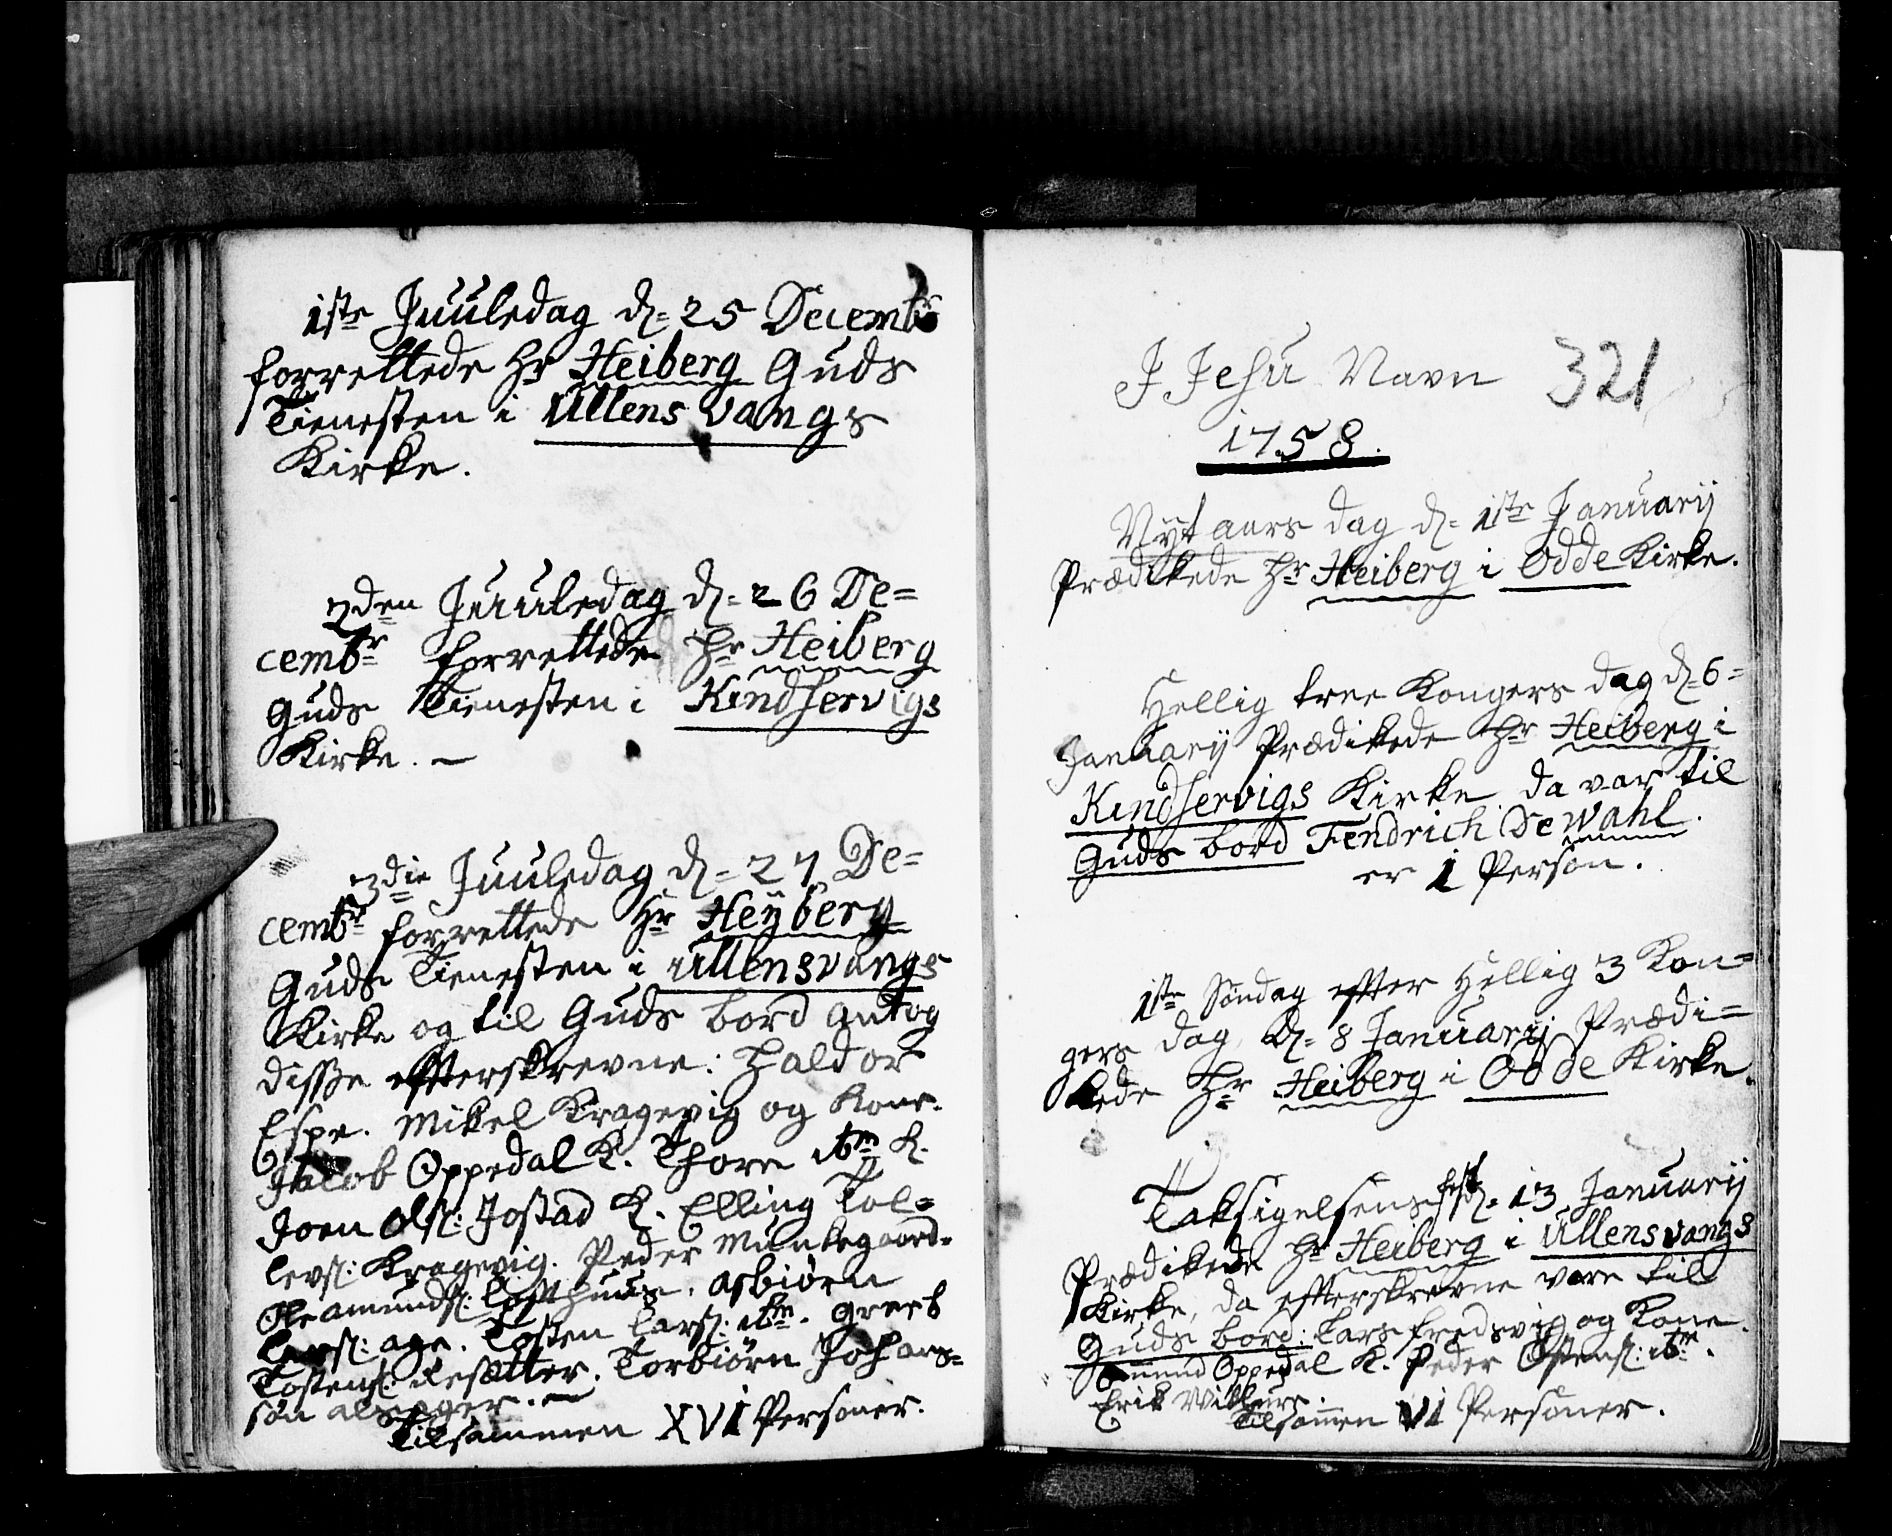 1ste Juuledag d. 25 Decembr
forrettede Hr Heiberg Guds
Tienesten i Ullensvangs
Kirke.
2den Juuledag d. 26 De=
cembr forrettede Hr Heiberg
Guds Tienesten i Kindservigs
Kirke. —
3die Juuledag d. 27 De=
cembr forrettede Hr Heÿberg
Guds Tienesten i Ullensvangs
Kirke og til Guds bord antog
disse efterskrevne: Haldor
Espe. Mikel Kragevig og Kone.
Jacob Oppedal K. Thore ibm K.
Joen Ols: Jostad K. Elling Tol=
levs: Kragevig. Peder Munkegaard.
Ole amunds: Lofthuus. Asbiørn
Lars: age. Tosten Lars: ibm. Greed
Tostens: Resætter. Torbiørn Johans=
søn alsager. —
Tilsammen XVI Personer.
J Jesu Navn 321
1758.
Nÿt aars dag d. 1ste Januarij
Prædikede Hr Heiberg i Odde Kirke.
Hellig tree Kongers dag d. 6=
Januarij Prædikede Hr Heiberg i
Kindservigs Kirke, da var til
Guds bord Fendrich De Wahl.
er 1 Person.
1ste Søndag efter Hellig 3 Kon=
gers dag, d. 8 Januarij Prædi=
kede Hr Heiberg i Odde Kirke.
Taksigelsens fest d. 13 Januarij
Prædikede Hr Heiberg i Ullensvangs
Kirke, da efterskrevne vare til
Guds bord: Lars fredsvig og Kone.
Omund Oppedal K. Peder Østens: ibm.
Erik Wilhure.
Tilsamen VI Personer.